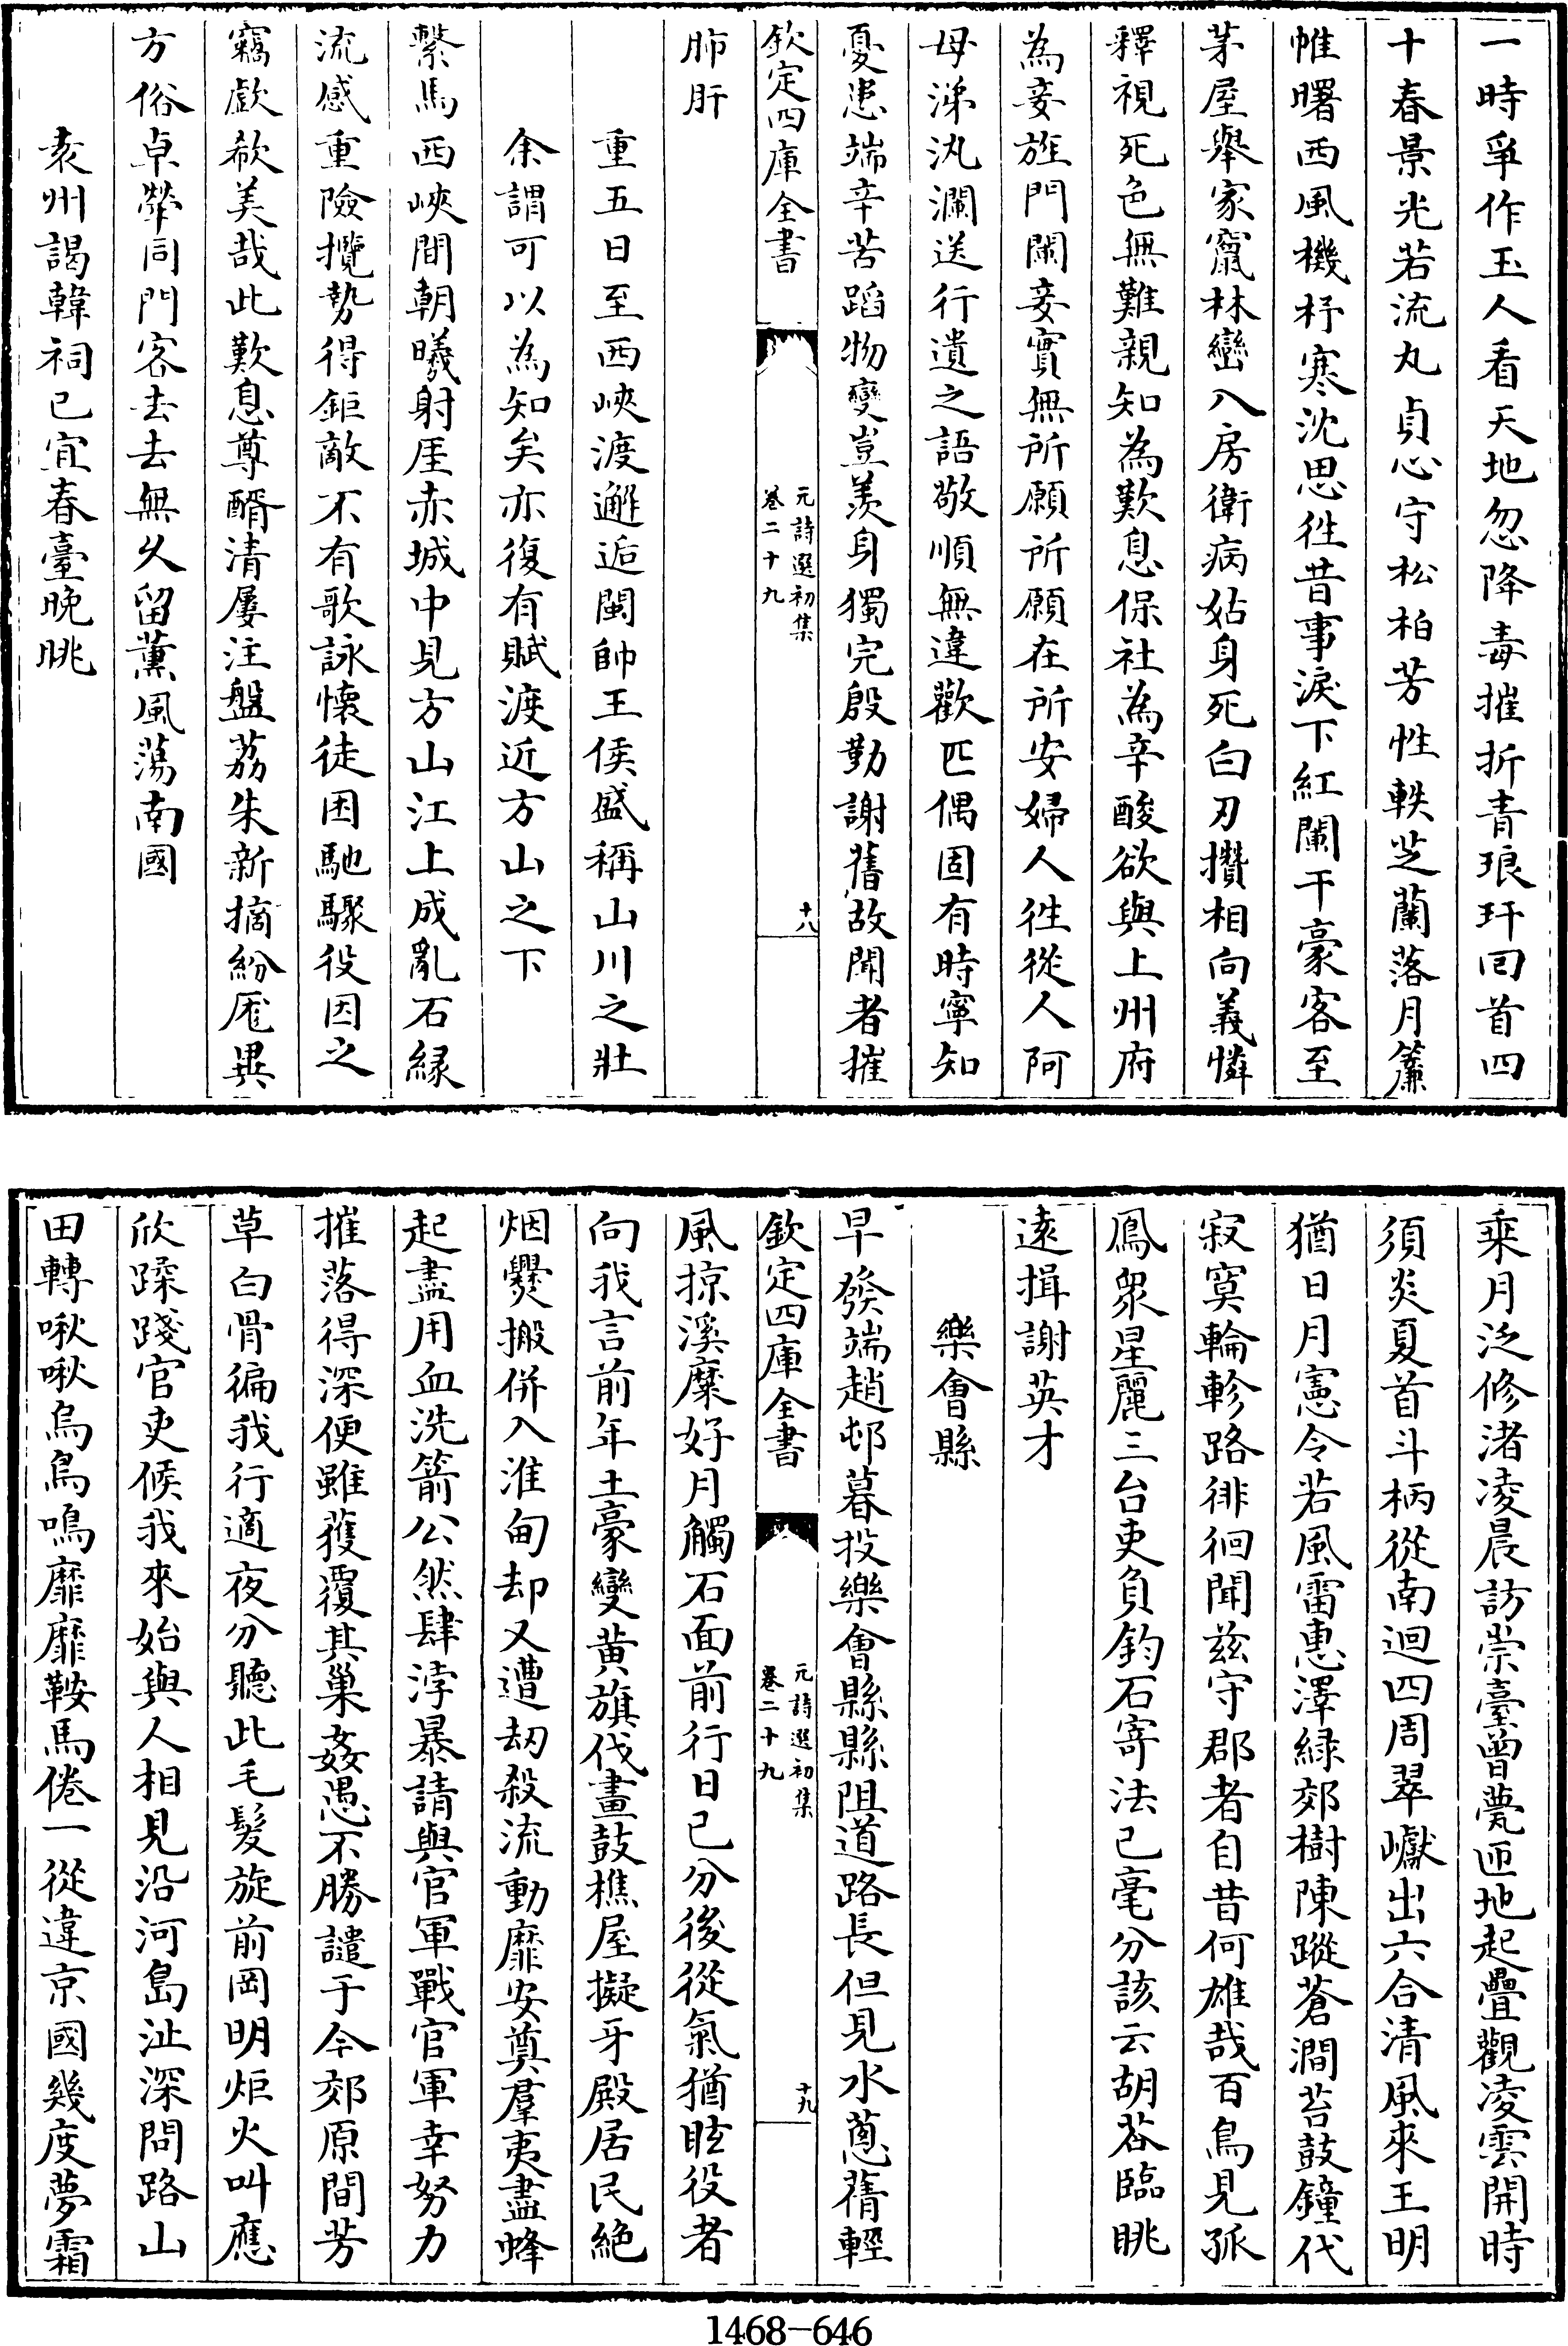 一時爭作玉人看天地忽降毒摧折青琅玕回首四
十春景光若流丸貞心守松柏芳性軼芝蘭落月簾
帷曙西風機杼寒沈思徃昔事淚下紅闌干豪客至
茅屋舉家竄林巒入房衛病姑身死白刃攢相向義憐
釋視死色無難親知為歎息保社為辛酸欲與上州府
為妾旌門闌妾實無所願所願在所安婦人徃從人阿
母涕汍瀾送行遺之語敬順無違歡匹偶固有時寧知
憂患端辛苦蹈物變豈羨身獨完殷勤謝舊故聞者摧
欽定四庫全書
元詩選初集
卷二十九
十八
肺肝
重五日至西峽渡邂逅閩帥王侯盛稱山川之壯
余謂可以為知矣亦復有賦渡近方山之下
繫馬西峽間朝曦射厓赤城中見方山江上成亂石緣
流感重險攬勢得鉅敵不有歌詠懷徒困馳驟役因之
竊歔欷美哉此歎息尊醑清屢注盤荔朱新摘紛厖異
方俗卓犖同門客去去無久留薰風蕩南國
袁州謁韓祠已宜春臺晚眺
乘月泛修渚凌晨訪崇臺曾甍匝地起疊觀凌雲開時
須炎夏首斗柄從南迴四周翠巘出六合清風來王明
猶日月憲令若風雷惠澤緑郊樹陳蹤蒼澗苔鼓鐘代
寂寞輪軫路徘徊聞兹守郡者自昔何雄哉百鳥見孤
鳳衆星麗三台吏負鈞石寄法已毫分該云胡莅臨眺
遠揖謝英才
樂會縣
早發端趙邨暮投樂會縣縣阻道路長但見水葱蒨輕
欽定四庫全書
元詩選初集
卷二十九
十九
風掠溪糜好月觸石面前行日已分後從氣猶眩役者
向我言前年土豪變黄旗伐畫鼓樵屋擬牙殿居民絶
烟爨搬併入淮甸却又遭劫殺流動靡安奠羣夷盡蜂
起盡用血洗箭公然肆浡暴請與官軍戰官軍幸努力
摧落得深便雖獲覆其巢姦愚不勝譴于今郊原間芳
草白骨徧我行適夜分聽此毛髮旋前岡明炬火叫應
欣蹂踐官吏候我來始與人相見沿河島沚深問路山
田轉啾啾烏鳥鳴靡靡鞍馬倦一從違京國幾度夢霜
1468-646